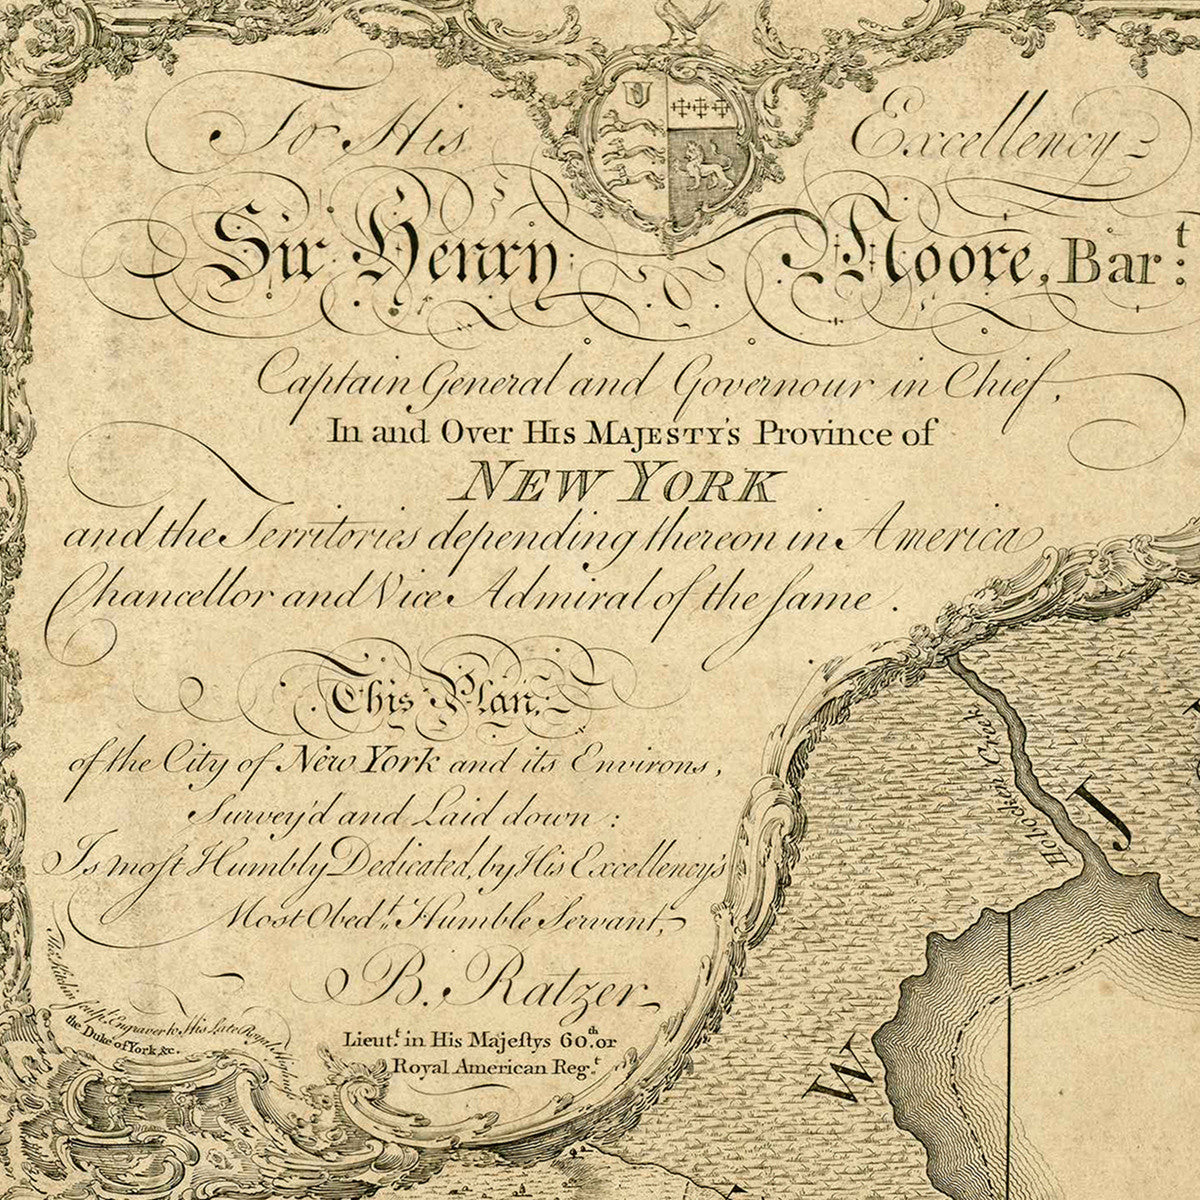 To His Excellency
Sir Henry Moore, Bar.t
Captain General and Governour in Chief,
In and Over His Majesty's Province of
NEW YORK
and the Territories depending thereon in America
Chancellor and Vice Admiral of the same.
This Plan,
of the City of New York and its Environs,
Survey'd and Laid down:
Is most Humbly Dedicated, by His Excellency's
Most Obed.t Humble Servant,
B. Ratzer
Lieut.t in His Majestys 60.th or
Royal American Reg.t
Tho.s Kitchin Sculp.t Engraver to His Late Royal Highness
the Duke of York &c.
Hoboken Creek
J
W